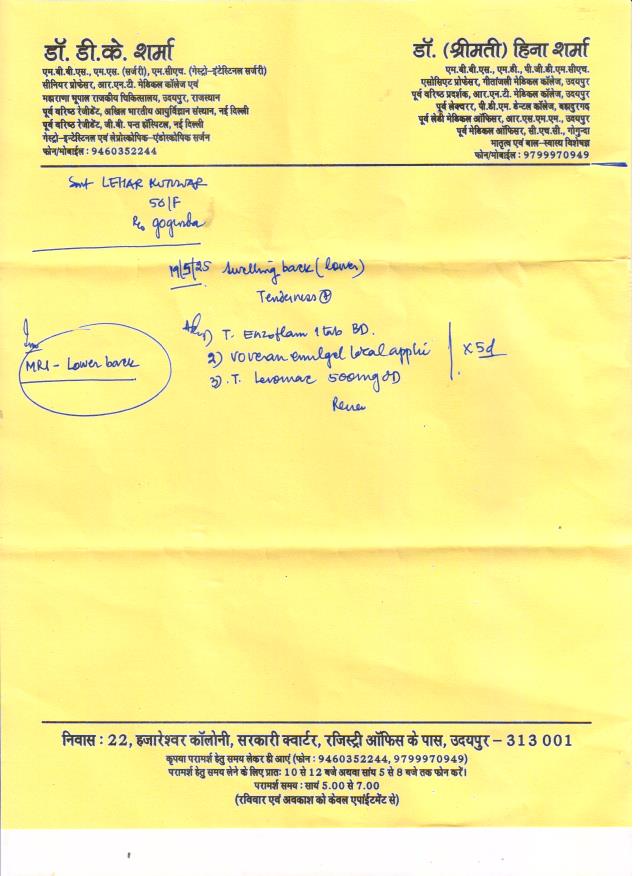 डॉ. डी.के. शर्मा
एम.बी.बी.एस., एम.एस. (सर्जरी), एम.सीएच. (गेस्ट्रो-इंटेस्टिनल सर्जरी)
सीनियर प्रोफेसर, आर.एन.टी. मेडिकल कॉलेज एवं
महाराणा भूपाल राजकीय चिकित्सालय, उदयपुर, राजस्थान
पूर्व वरिष्ठ रेजीडेंट, अखिल भारतीय आयुर्विज्ञान संस्थान, नई दिल्ली
पूर्व वरिष्ठ रेजीडेंट, जी.बी. पन्त हॉस्पिटल, नई दिल्ली
गेस्ट्रो-इन्टेस्टिनल एवं लेप्रोस्कोपिक-एंडोस्कोपिक सर्जन
फोन/मोबाईल : 9460352244
डॉ. (श्रीमती) हिना शर्मा
एम.बी.बी.एस., एम.डी., पी.जी.डी.एम.सीएच.
एसोसिएट प्रोफेसर, गीतांजली मेडिकल कॉलेज, उदयपुर
पूर्व वरिष्ठ प्रदर्शक, आर.एन.टी. मेडिकल कॉलेज, उदयपुर
पूर्व लेक्चरर, पी.डी.एम. डेन्टल कॉलेज, बहादुरगढ़
पूर्व लेडी मेडिकल ऑफिसर, आर.एस.एम.एम., उदयपुर
पूर्व मेडिकल ऑफिसर, सी.एच.सी., गोगुन्दा
मातृत्व एवं बाल-स्वास्थ्य विशेषज्ञ
फोन/मोबाईल : 9799970949
Smt LEHAR KUNWAR
50/F
R/o gogunda
19/5/25 Swelling back (lower)
Tenderness ⊕
MRI - Lower back
Adv 1) T. Enzoflam 1 tab BD.
2) voveran emulgel local appli
3) T. Levomac 500mg OD
x 5d
निवास : 22, हजारेश्वर कॉलोनी, सरकारी क्वार्टर, रजिस्ट्री ऑफिस के पास, उदयपुर – 313 001
कृपया परामर्श हेतु समय लेकर ही आएं (फोन : 9460352244, 9799970949)
परामर्श हेतु समय लेने के लिए प्रातः 10 से 12 बजे अथवा सांय 5 से 8 बजे तक फोन करें।
परामर्श समय : सायं 5.00 से 7.00
(रविवार एवं अवकाश को केवल एपांईटमेंट से)